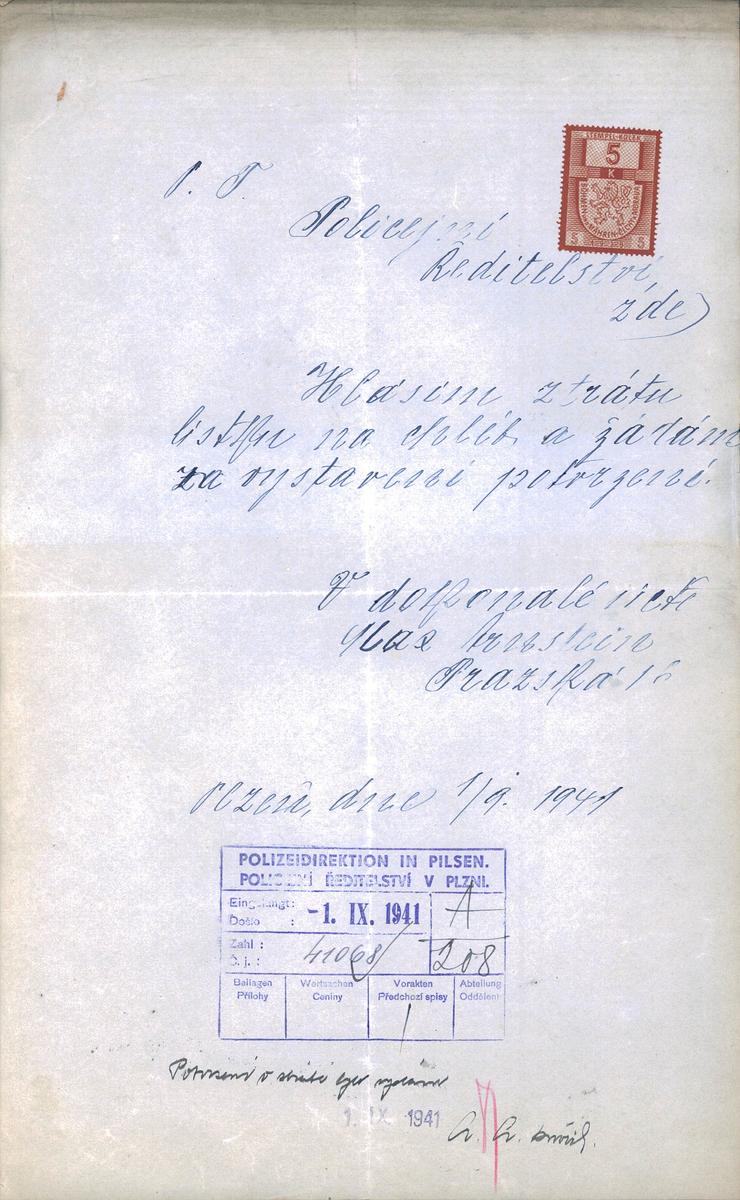 STEMPEL-KOLEK
5
K
BÖHMEN u. MÄHREN-ČECHY a MORAVA
5 5
P. T.
Policejní
Ředitelství
zde)
Hlásím ztrátu
lístku na chléb a žádám
za vystavení potvrzení.
V dokonalé úctě
Max Arnstein
Pražská
Plzeň, dne 1/9. 1941
POLIZEIDIREKTION IN PILSEN.
POLICEJNÍ ŘEDITELSTVÍ V PLZNI.
Eingelangt:
Došlo :
-1. IX. 1941
A
Zahl :
Č. j. :
41068/
208
Beilagen Wertsachen Vorakten Abteilung
Přílohy Ceniny Předchozí spisy Oddělení
/
Potvrzení o ztrátě bylo vydáno
1. IX. 1941